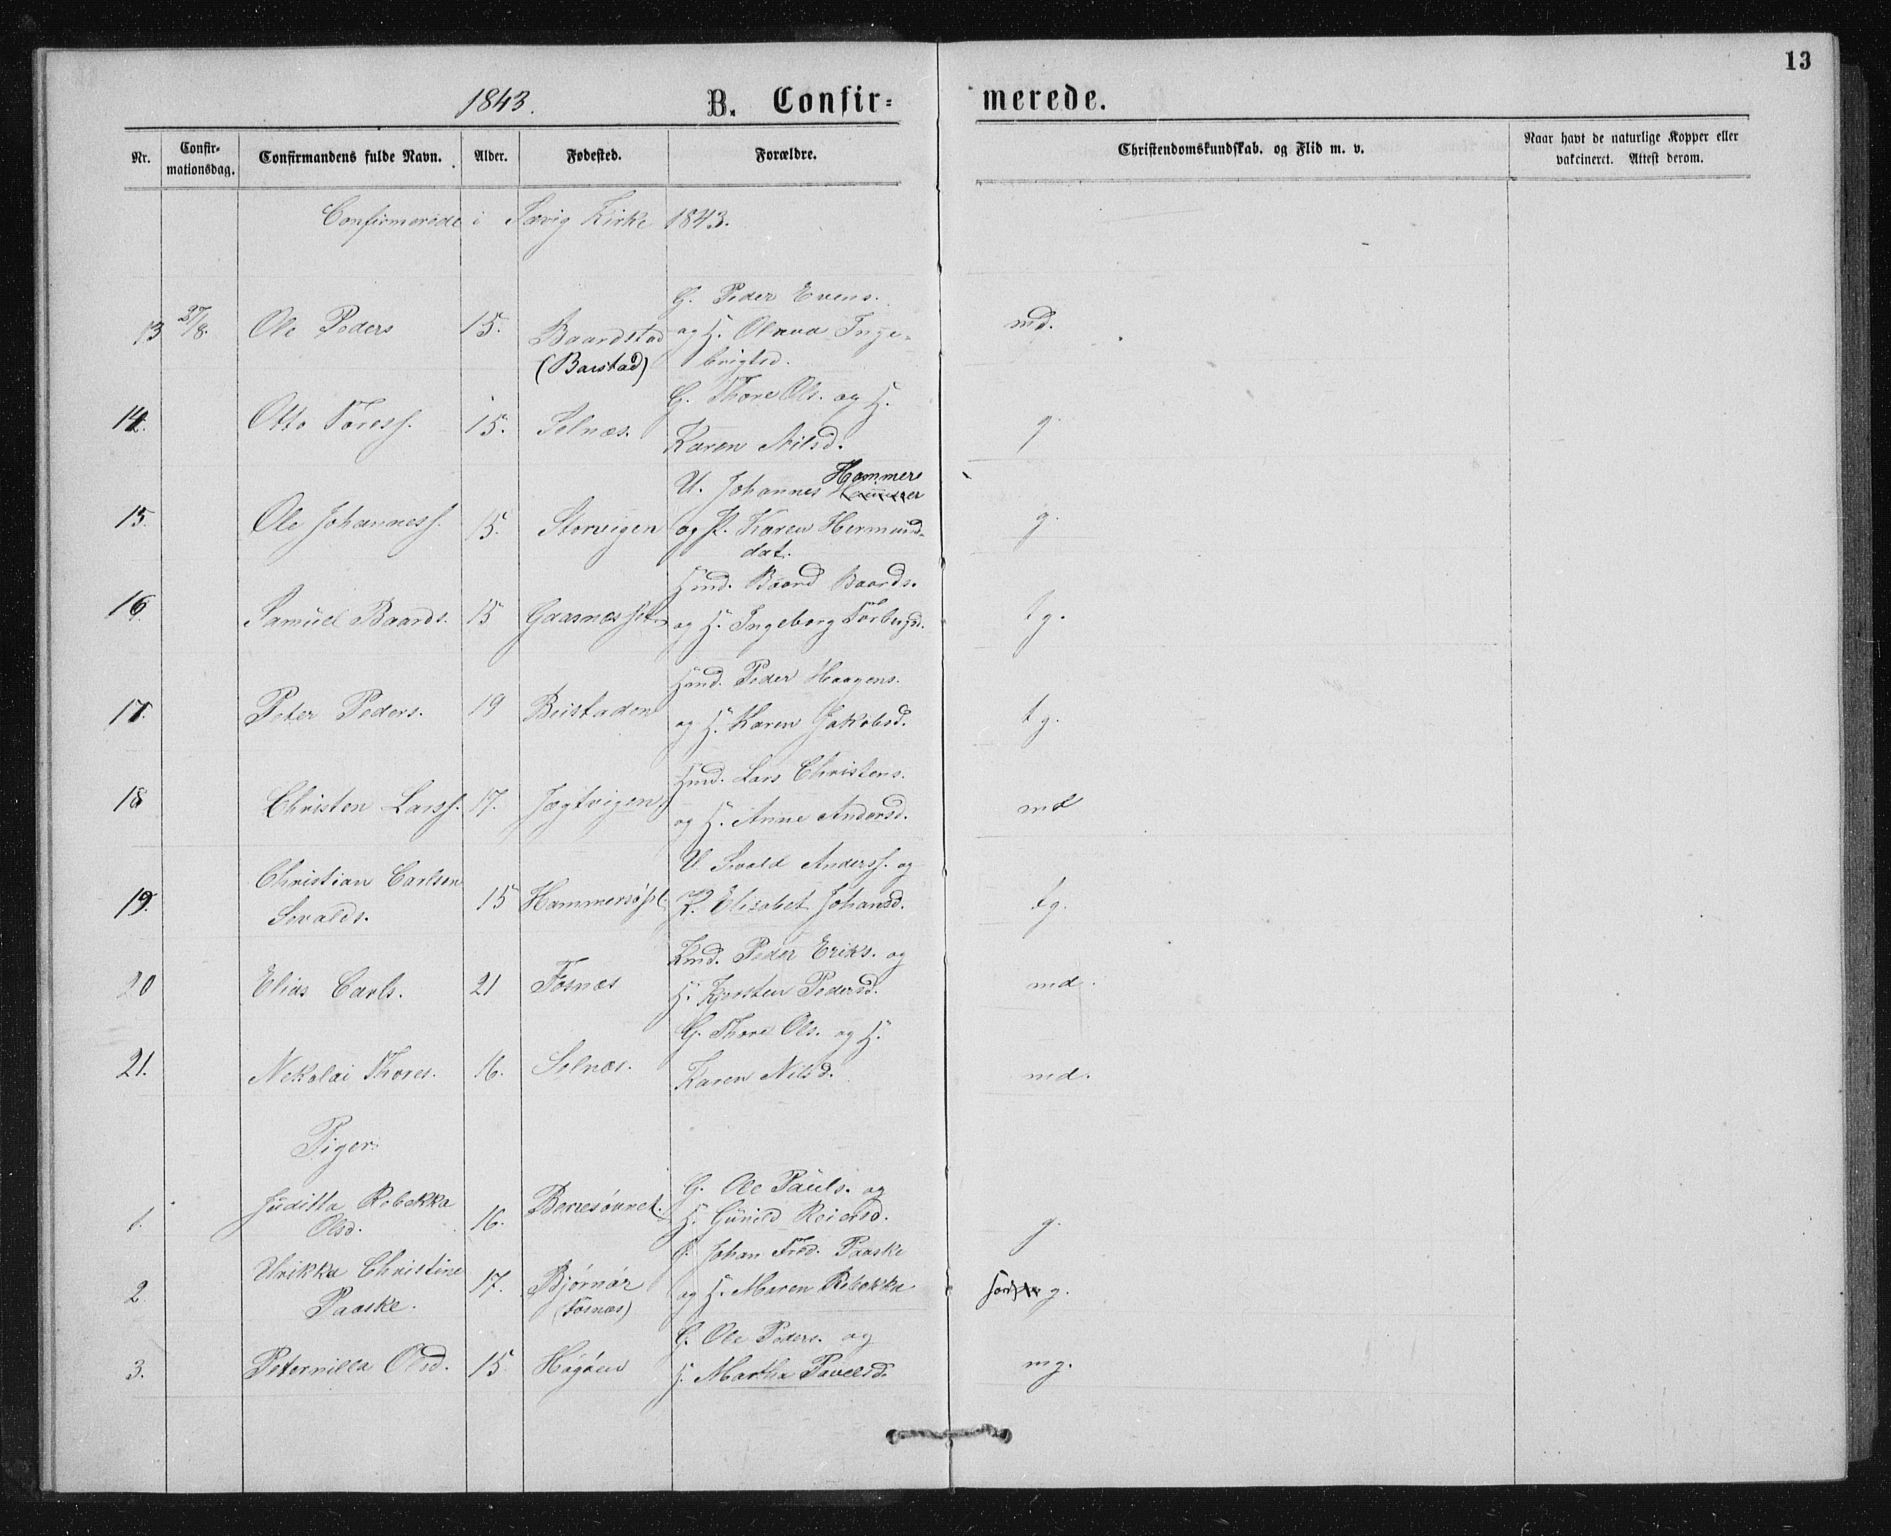 13
1843. B. Confir= merede.
Nr. Confir-mationsdag. Confirmandens fulde Navn. Alder. Fødested. Forældre. Christendomskundskab. og Flid m. v. Naar havt de naturlige Kopper eller vakcineret. Attest derom.
Confirmerede i Sævig Kirke 1843.
G. Peder Evens.
13 27/8. Ole Peders 15. Baardstad og H. Olava Inge- md.
(Barstad) brigtsd.
G. Thore Ols. og H.
14. Otto Toress. 15. Selnæs. Karen Nilsd. g.
U. Johannes Hammer
15. Ole Johanness. 15. Storvigen og P. Karen Hermund- g.
dat.
Hmd. Baard Baards.
16 Samuel Baards. 15 og H. Ingeborg Torbergsd. tg.
Hmd. Peder Haagens.
17. Peter Peders. 19 Beistaden og H. Karen Jakobsd. tg.
Hmd. Lars Christens.
18 Christen Larss. 17. Jægtvigen og H. Anne Andersd. md
Christian Carlsen U. Sivald Anderss. og
19. Sivalds. 15 P. Elisabet Johansd. tg.
Hmd. Peder Eriks. og
20 Elias Carls. 21 Fosnæs H. Kjersten Pedersd. md.
G. Thore Ols. og H.
21. Nekolai Thores. 16. Selnæs. Karen Nilsd. md.
Piger.
Juditta Rebekka G. Ole Pauls. og
1. Olsd. 16. H. Gunild Reiersd. g.
Ulrikka Christine Johan Fred. Paaske
2. Paaske. 17. Bjørnør og H. Maren Rebekka g.
(Fosnæs)
G. Ole Peders. og
3. Peternilla Olsd. 15. Høgøen H. Martha Pavelsd. mg.